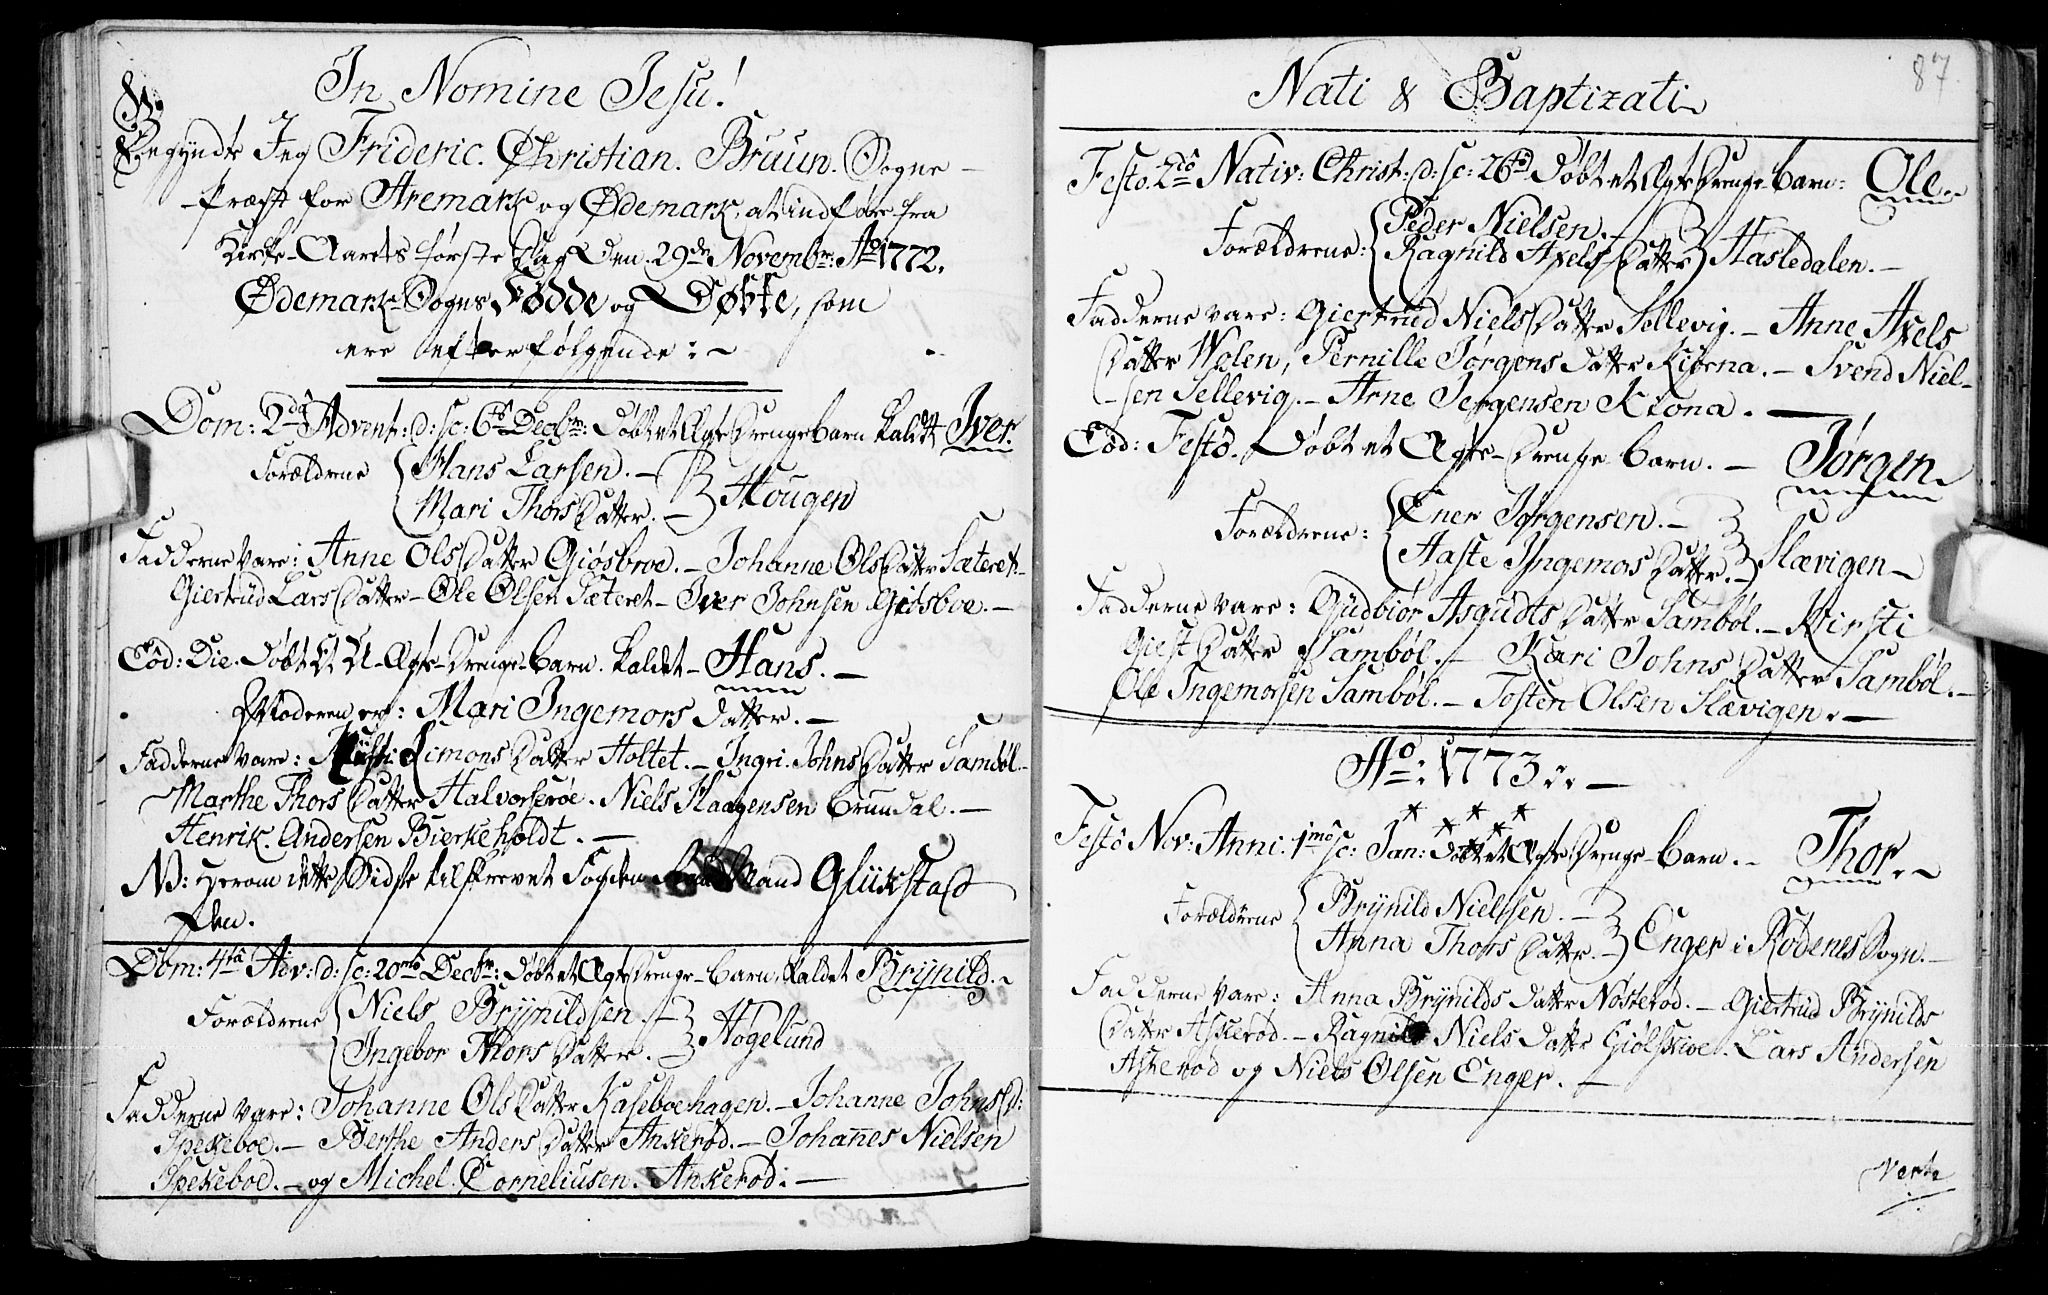 In Nomine Jesu!
Begyndte Jeg Frideric. Christian. Bruun. Sogne-
Præst for Aremark og Ødemark, at indføre fra
Kirke-Aarets første Dag Den. 29de Novembr: Ao 1772.
Ødemark-Sogns Fødde og Døbte, som
ere efterfølgende:~
Dom: 2da Advent: d: sc: 6to Decbr: Døbt et Ægte Drenge barn kaldt Iver.
Forældrene
Hans Larsen. -
Mari Thors Datter. -
Hougen
Fadderne vare: Anne Ols Datter Giøsboe. - Johanne Ols Datter Sæteret -
Giertrud Lars Datter - Ole Olsen Sæteret - Iver Johnsen Giøsboe. -
Eod: Die. Døbt Et U-Ægte-Drenge-barn. kaldet - Hans. -
Moderen er: Mari Ingemors Datter. -
Fadderne vare: Kirsti Simons Datter Holtet. - Ingri. Johns Datter Sambøl. -
Marthe Thors Datter Halvorserøe. Niels Haagensen Brundal. -
Henrik. Andersen Bierkeholdt. -
NB: Herom dette Sidste tilskrevet Fogden Glückstad
Den.
Dom: 4ta Adv: d: sc: 20mo Decbr: Døbt et Ægte Drenge-barn, kaldet Brynild. ~
Forældrene
Niels Brynildsen. -
Ingebor Thors Datter. -
Høgelund
Fadderne vare: Johanne Ols Datter Kaseboehagen. - Johanne Johns D:
Spekeboe. - Berthe Anders Datter Ankerød. - Johannes Nielsen
Spekeboe. - og Michel. Corneliusen. Ankerød: -
87.
Nati & Baptizati
Festo. 2do Nativ: Christ: d: sc: 26to Døbt et Ægte Drenge-barn: Ole. ~
Forældrene:
Peder Nielsen. -
Ragnild Axels Datter
Hasledalen. -
Fadderne vare: Giertrud Niels Datter Sellevig. - Anne Axels
Datter Wolen, Pernille Jørgens Datter Kiøna. - Svend Niel-
-sen Sellevig. - Arne Jørgensen Kiona. -
Eod: Festo. Døbt et Ægte-Drenge barn. - Jørgen
Forældrene:
Ener Jørgensen. -
Aaste Ingemos Datter. -
Slævigen
Fadderne vare: Gudbiør Asgudts Datter Sambøl. - Kirsti
Giest Datter Sambøl. - Kari Johns Datter Sambøl. -
Ole Ingemorsen Sambøl. - Tosten Olsen Slævigen. -
Ao: 1773. -
Festo Nov: Anni. 1mo sc: Jan: Døbt et Ægte Drenge-barn. - Thor. ~
Forældrene
Brynild Nielssen. -
Anna Thors Datter. -
Enger i Rødenes Sogn. -
Fadderne vare: Anna Brynilds Datter Nøsterød. - Giertrud Brynilds
Datter Askerød. - Ragnild Niels Datter Giølskoe. Lars Andersen
Askerød og Niels Olsen Enger. -
Verte